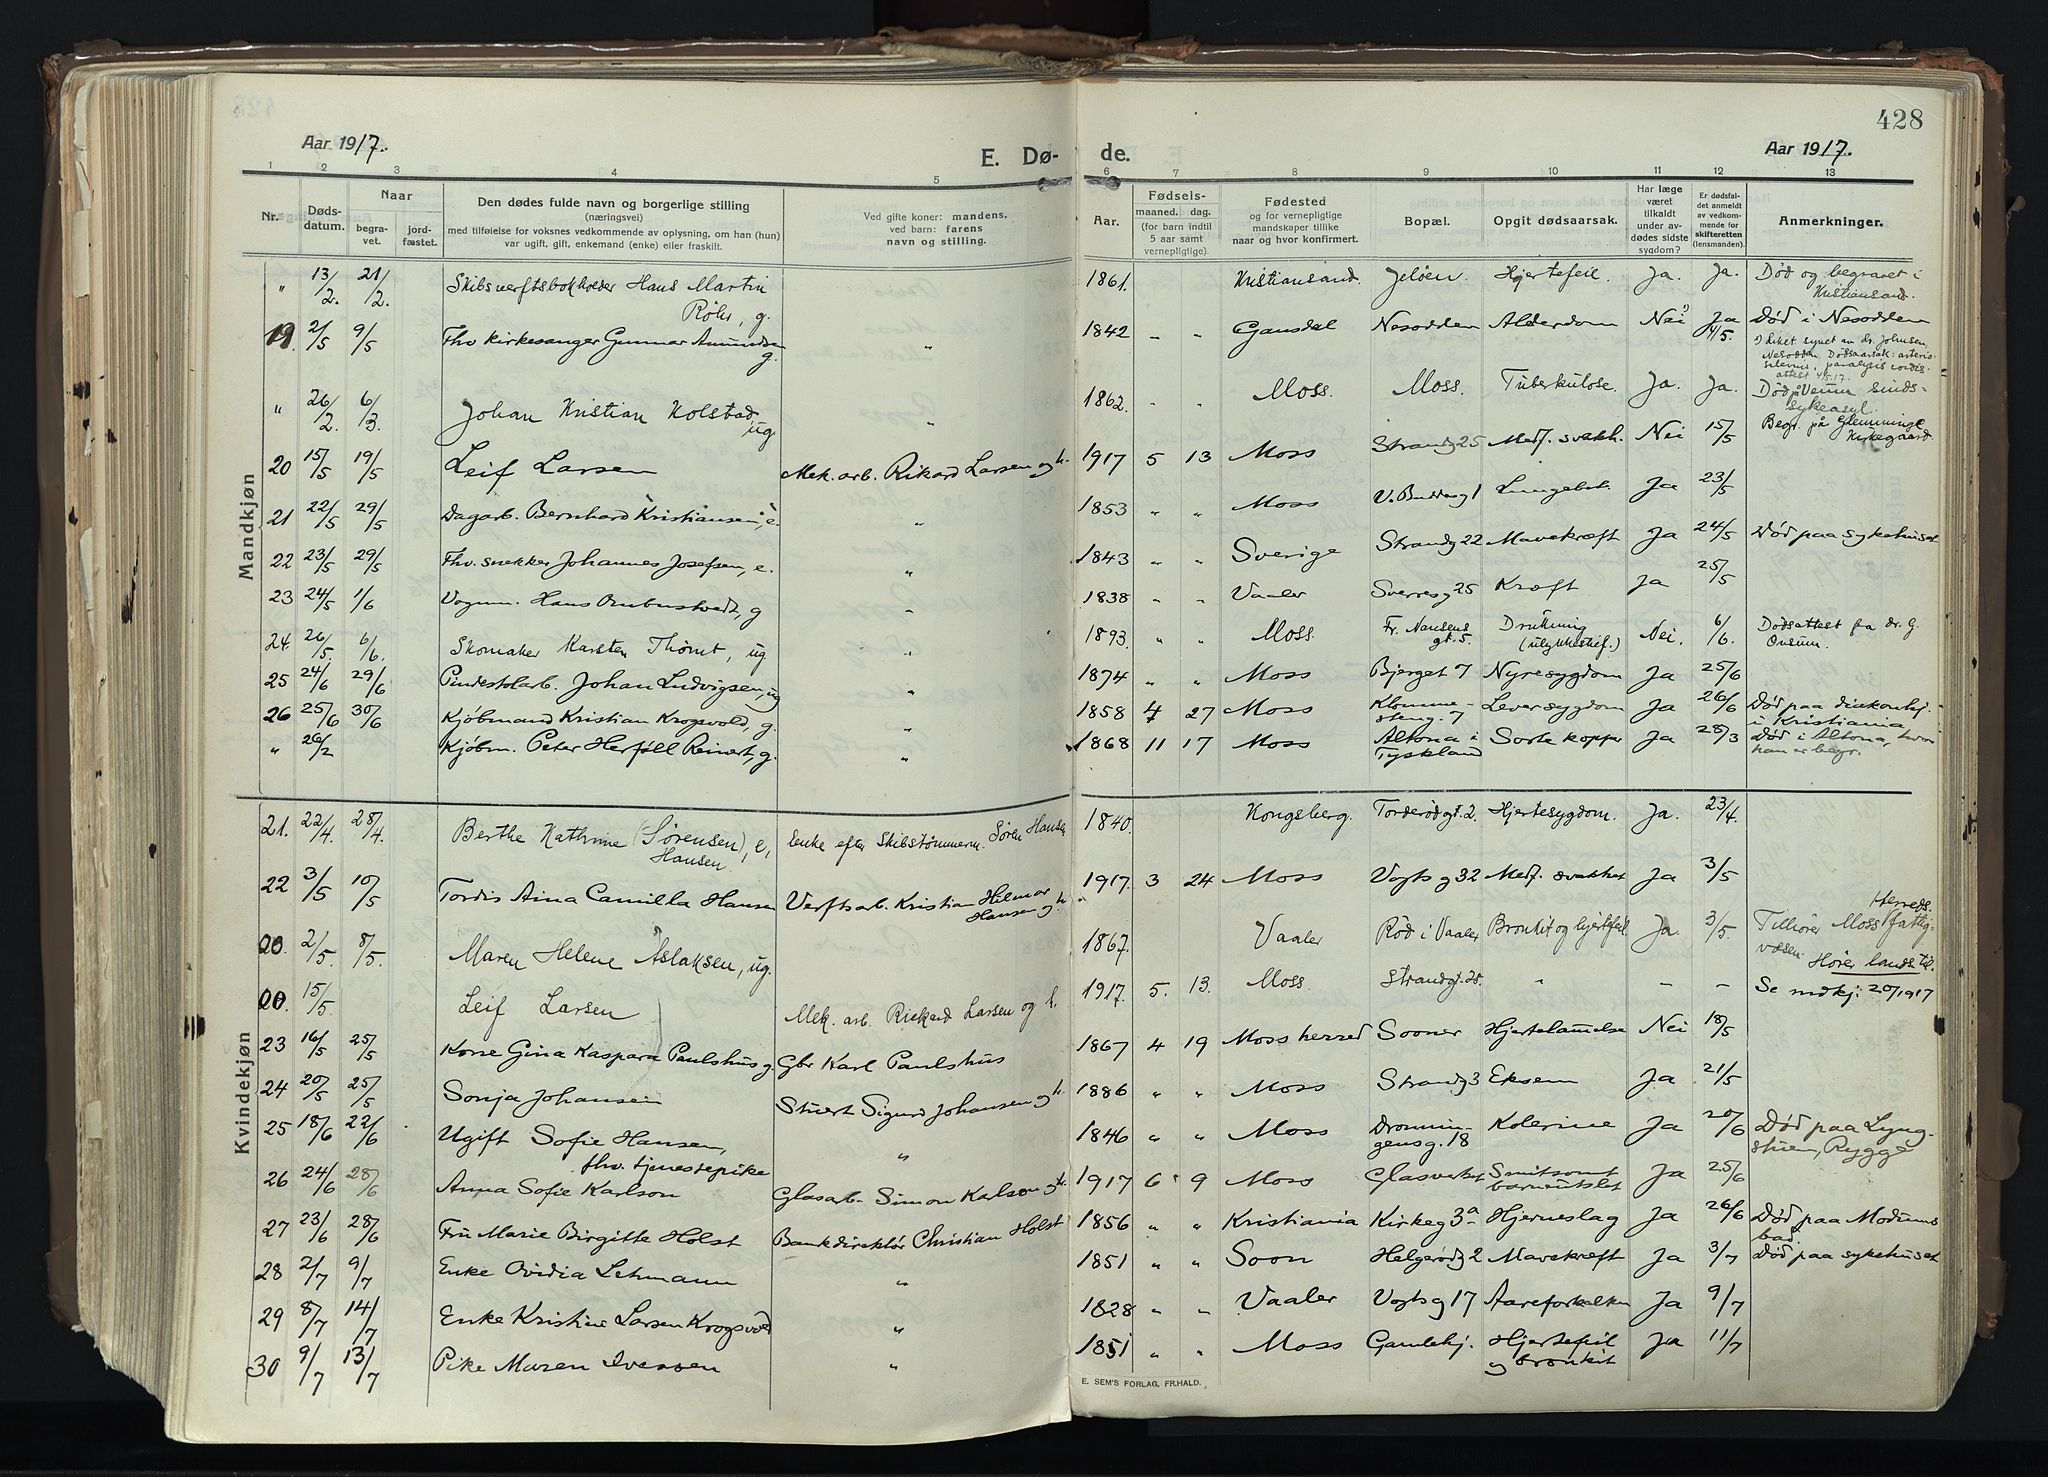 428
Aar 1917.
E. Dø- de.
Aar 1917.
1 2 3 4 5 6 7 8 9 10 11 12 13
Nr. Døds-datum. Naar begra-vet. jord-fæstet. Den dødes fulde navn og borgerlige stilling (næringsvei) med tilføielse for voksnes vedkommende av oplysning, om han (hun) var ugift, gift, enkemand (enke) eller fraskilt. Ved gifte koner: mandens, ved barn: farens navn og stilling. Aar. Fødsels- maaned. dag. (for barn indtil 5 aar samt vernepligtige). Fødested og for vernepligtige mandskaper tillike naar og hvor konfirmert. Bopæl. Opgit dødsaarsak. Har læge været tilkaldt under av-dødes sidste sygdom? Er dødsfal-det anmeldt av vedkom-mende for skifteretten (lensmanden). Anmerkninger.
Mandkjøn
" 13/2. 21/2. Skibsverftsbokholder Hans Martin Røhr, g. 1861. Kristiansand. Jeløen. Hjertefeil. Ja. Ja. Død og begravet i Kristiansand.
19. 2/5 9/5 Fhv kirkesanger Gunnar Amundsen g. " 1842 - " Gansdal Nesodden Alderdom Nei 1) Ja 4/5. Død i Nesodden
1) Liket synet av dr. Johnsen, Nesodden. Dødsaarsak: arterio-sclerose, paralysis cordis. attest 4/5 17.
" 26/2. 6/3. Johan Kristian Kolstad, ug. " 1862. - " Moss. Moss. Tuberkulose. Ja. Ja. Død på Veum sinds-sykeasyl. Begr. på Glemminge Kirkegaard.
20 15/5 19/5 Leif Larsen Mek. arb. Rikard Larsen og h. 1917 5 13 Moss Strandg 25 Medf. svakh. Nei 15/5
21 22/5 29/5 Dagarb. Bernhard Kristiansen, e. " 1853 " " Moss V. Buddesg 1 Lungebet. Ja 23/5
22 23/5 29/5 Fhv. snekker Johannes Josefsen, e. " 1843 " " Sverige Strandg 22 Mavekræft Ja 24/5 Død paa sykehuset
23 24/5 1/6 Vognm. Hans Ombustvedt, g " 1838 " " Vaaler Sverresg 25 Kræft Ja 25/5
24. 26/5. 6/6. Skomaker Karsten Thømt, ug. " 1893. " " Moss. Fr. Nansens gt. 5 Drukning (ulykkestilf.) Nei. 6/6. Dødsattest fra dr. G. Onsum.
25 24/6 29/6 Pindestolarb. Johan Ludvigsen, ug " 1874 " " Moss Bjerget 7 Nyresygdom Ja 25/6
26 25/6 30/6 Kjøbmand Kristian Krogsvold, g. 1858 4 27 Moss Klomme-steng. 7 Leversygdom Ja 26/6 Død paa diakonhj. i Kristiania
" 26/2 Kjøbm. Peter Herføll Reinert, g. " 1868 11 17 Moss Altona i Tyskland Sorte kopper Ja 28/3 Død i Altona, hvor han er begr.
Kvindekjøn
21. 22/4. 28/4. Berthe Kathrine (Sørensen), e, Hansen. Enke efter Skibstømmerm. Søren Hansen 1840. Kongsberg. Torderødgt. 2. Hjertesygdom. Ja. 23/4.
22 3/5 10/5 Tordis Aina Camilla Hansen Verftsarb. Kristian Hilmar Hansen og h. 1917. 3 24 Moss Vogtsg 32 Medf. svakhet Ja 3/5
20. 2/5. 8/5. Maren Helene Aslaksen, ug. 1867. Vaaler Rød i Vaaler Bronkit og hjertfeil. Ja. 3/5. Tilhører Moss Herreds fattig-væsen. Hører lands til.
20. 15/5. Leif Larsen Mek. arb. Rickard Larsen og h. 1917. 5. 13. Moss. Strandgt. 25. " - - Se mdkj. 20/1917
23 16/5 25/5 Kone Gina Kaspara Paulshus g. Gbr Karl Paulshus 1867 4 19 Moss herred Sooner Hjertelammelse Nei 18/5
24 20/5 25/5 Sonja Johansen Stuert Sigurd Johansen og h. 1886 " " Moss Strandg 3 Eksem Ja 21/5
25 18/6 22/6 Ugift Sofie Hansen, fhv. tjenestepike " 1846 " " Moss Dronnin-gensg. 18 Kolerine Ja 20/6 Død paa Lyng-stuen, Rygge
26 24/6 28/6 Anna Sofie Karlson Glasarb. Simon Karlson og h. 1917 6 9 Moss Glasverket Smitsomt barneutslet Ja 25/6
27 23/6 28/6 Fru Marie Birgitte Holst Bankdirektør Christian Holst 1856 " " Kristiania Kirkeg 3a Hjerneslag Ja 26/6 Død paa Modums bad.
28 2/7 9/7 Enke Ovidia Lehmann " 1851 " " Soon Helgerødg 2 Mavekræft Ja 3/7 Død paa sykehuset
29 8/7 14/7 Enke Kristine Larsen Krogsvold " 1828 " " Vaaler Vogtsg 17 Aareforkalken Ja 9/7
30 9/7 13/7 Pike Maren Iversen " 1851 " " Moss Gamlehj. Hjertefeil og bronkit Ja 11/7
E. SEM'S FORLAG, FR.HALD.